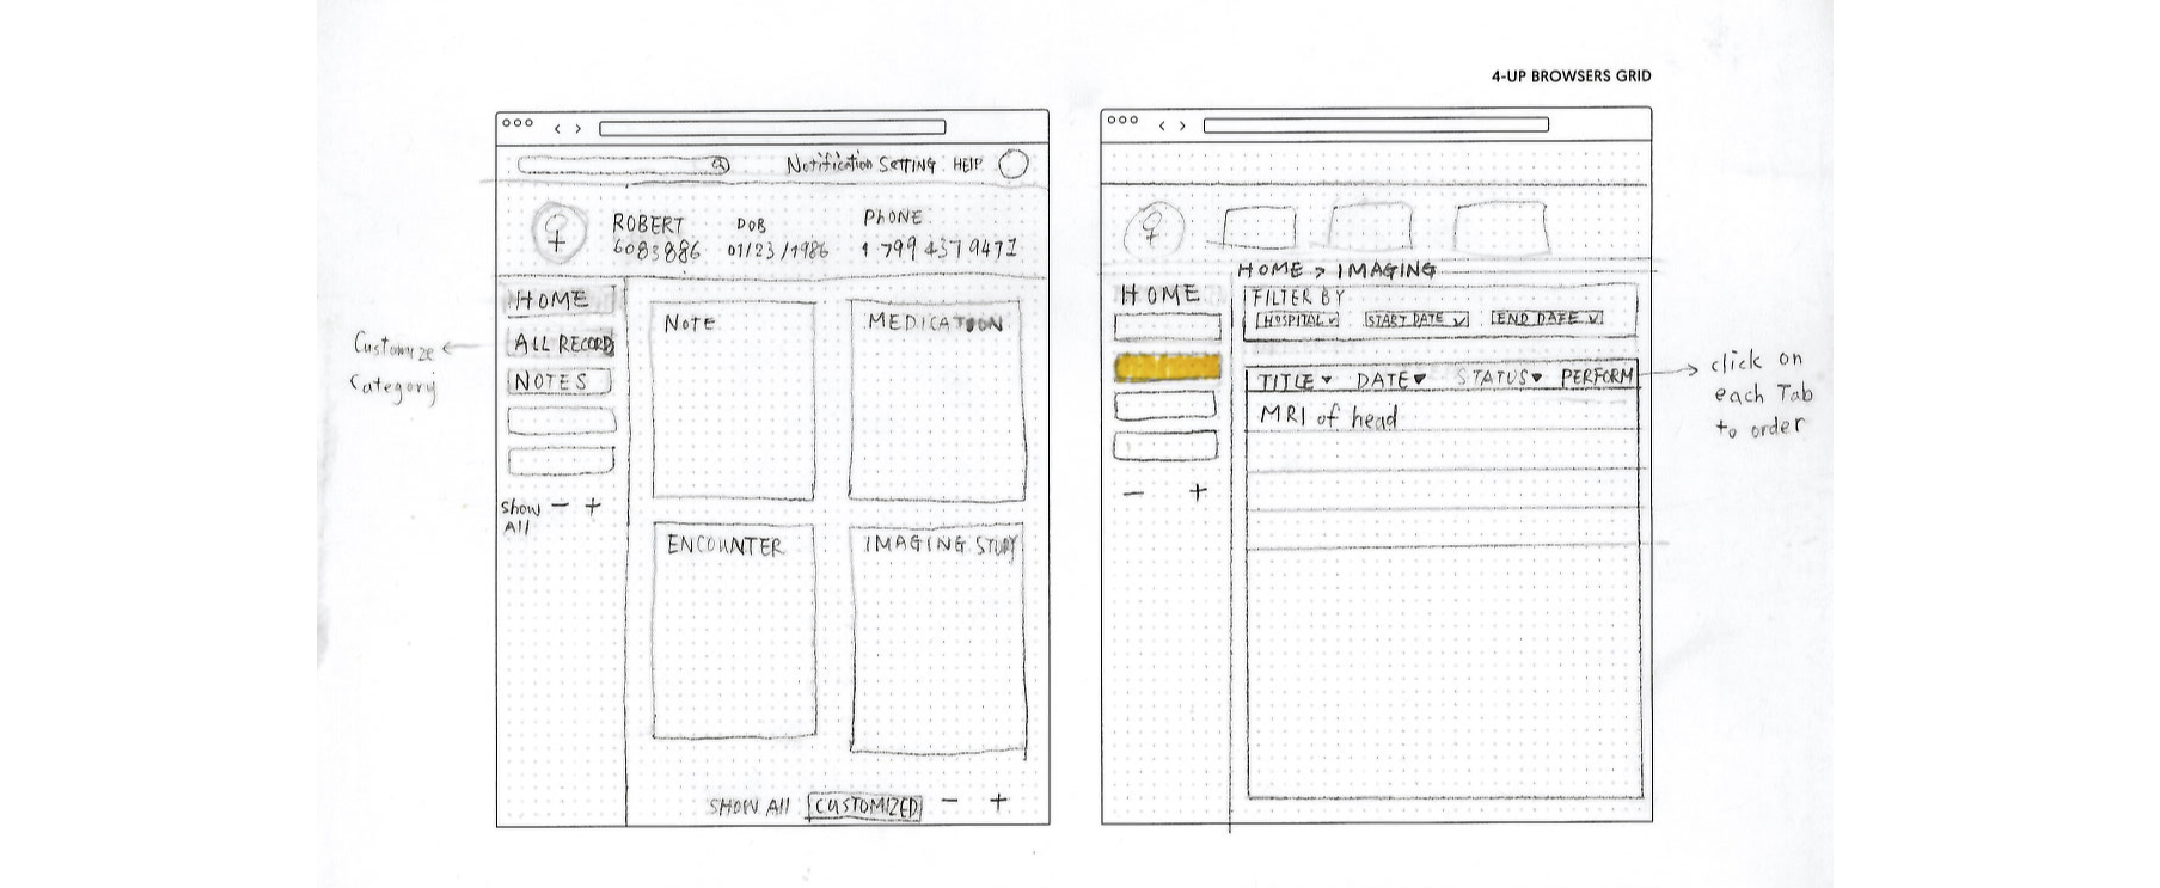 4-UP BROWSERS GRID
Notification SETTING HELP
ROBERT DOB PHONE
6083886 01/23/1986 1 799 437 9471
HOME
ALL RECORD
NOTES
Show - +
All
Customize
Category
NOTE
MEDICATION
ENCOUNTER
IMAGING STUDY
SHOW All CUSTOMIZED - +
HOME > IMAGING
HOME
- +
FILTER BY
HOSPITAL START DATE END DATE
TITLE DATE STATUS PERFORM
MRI of head
click on
each Tab
to order